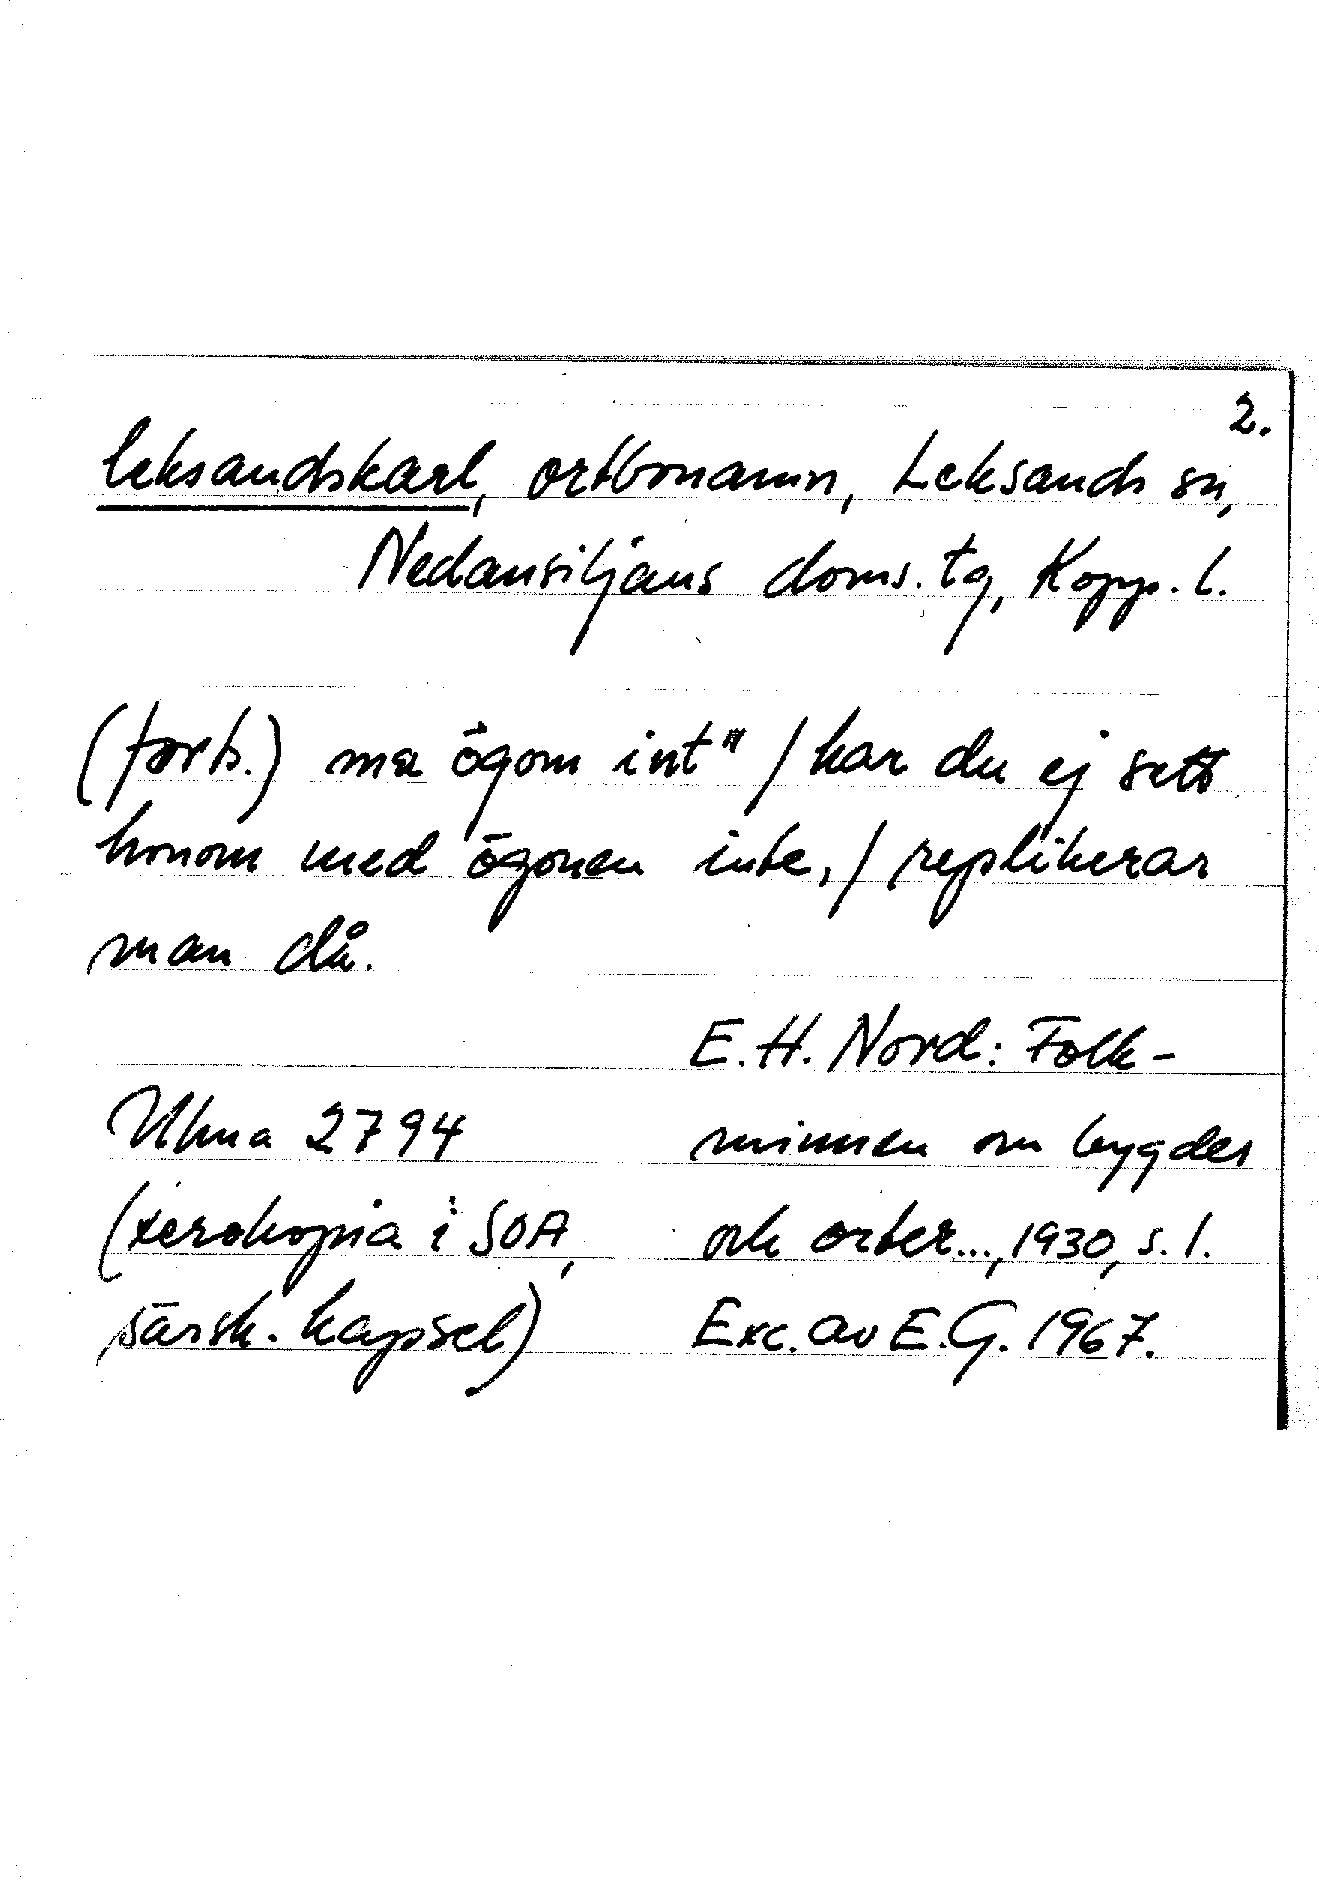 2.
leksandskarl, ortbonamn, Leksands sn,
Nedansiljans doms. tg, Kopp. l.
(forts.) ma ögom int" / har du ej sett
honom med ögonen inte, / replikerar
man då.
E. H. Nord: Folk-
minnen om bygder
och orter..., 1930, s. 1.
Exc. av E. G. 1967.
Ulma 2794
(xerokopia i SOA,
särsk. kapsel)